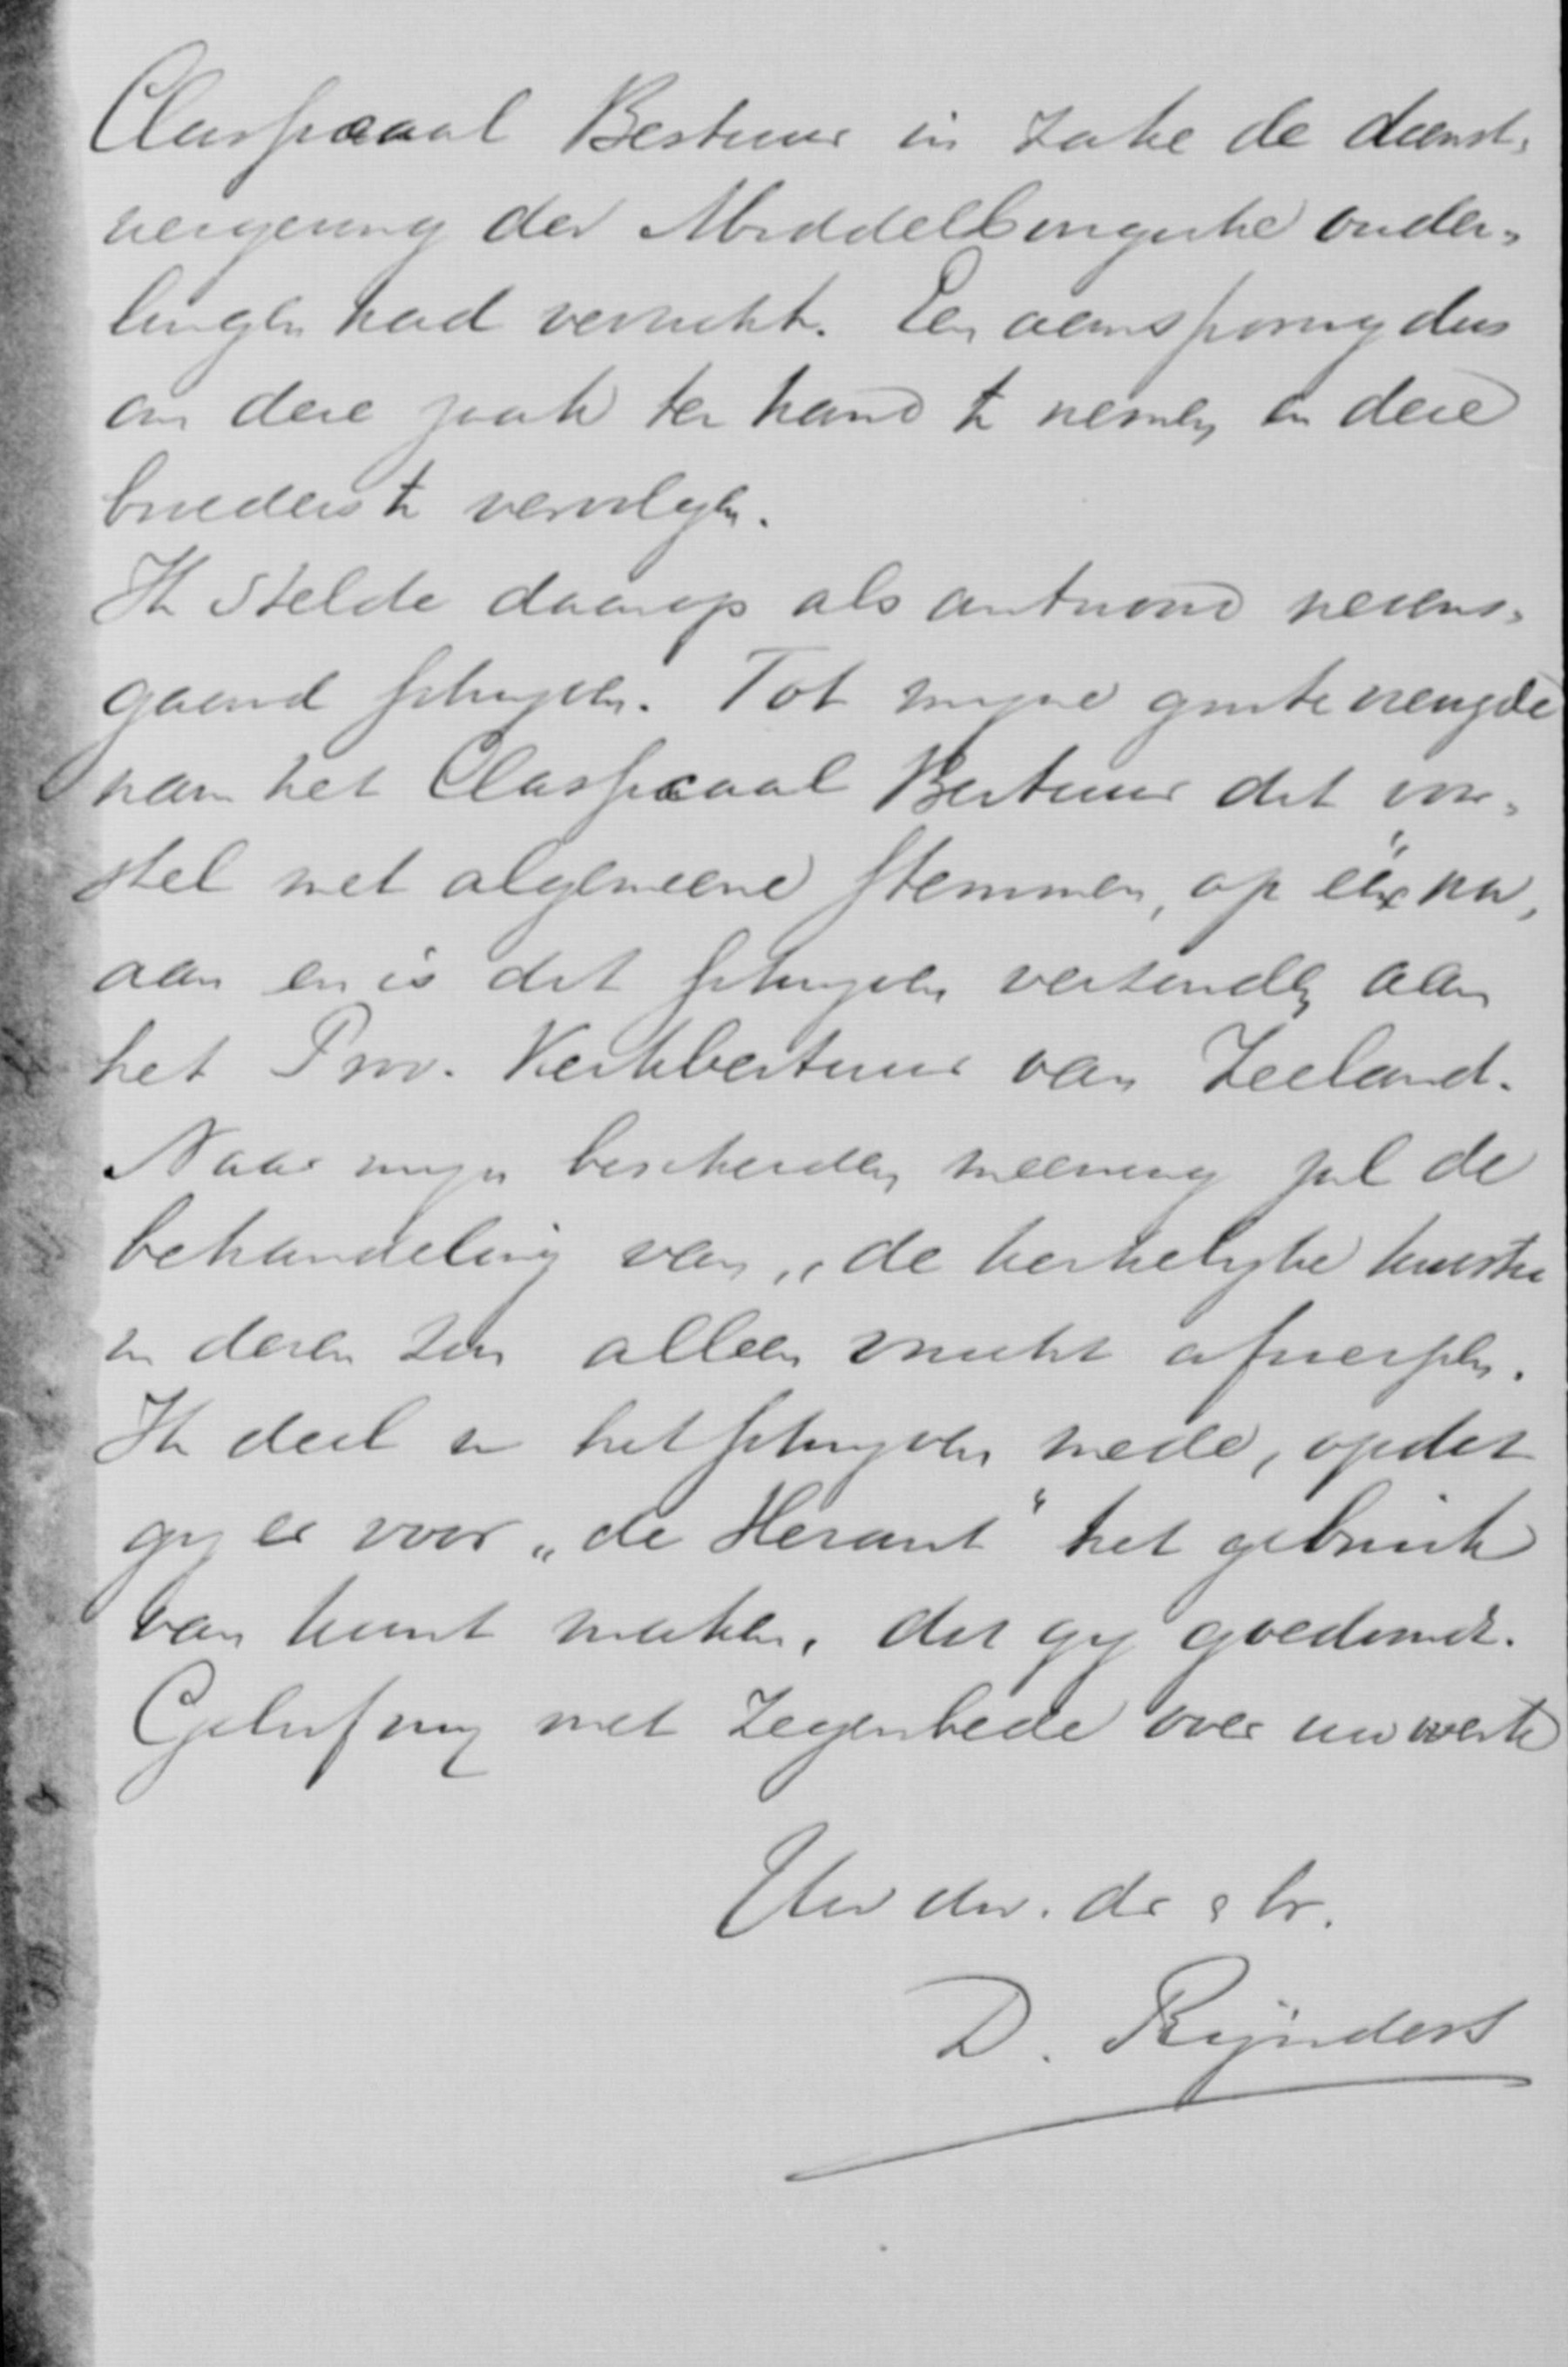 Classicaal Bestuur in zake de dienst-
weigering der Middelburgsche ouder-
lingen had verricht. Een aansporing dus
om deze zaak ter hand te nemen en deze
broeders te vervolgen.
Ik stelde daarop als antwoord nevens-
gaand schrijven. Tot mijne groote vreugde
nam het Classicaal Bestuur dit voor-
stel met algemeene stemmen, op één na,
aan en is dit schrijven verzonden aan
het Prov. Kerkbestuur van Zeeland.
Naar mijn bescheiden meening zal de
behandeling van „de kerkelijke kwestie
in dezen zin alleen vrucht afwerpen.
Ik deel u het schrijven mede, opdat
gij er voor „de Heraut" het gebruik
van kunt maken, dat gij goedvindt.
Geloof mij met zegenbede over uw werk
Uw dw. dr & br.
D. Rijnders